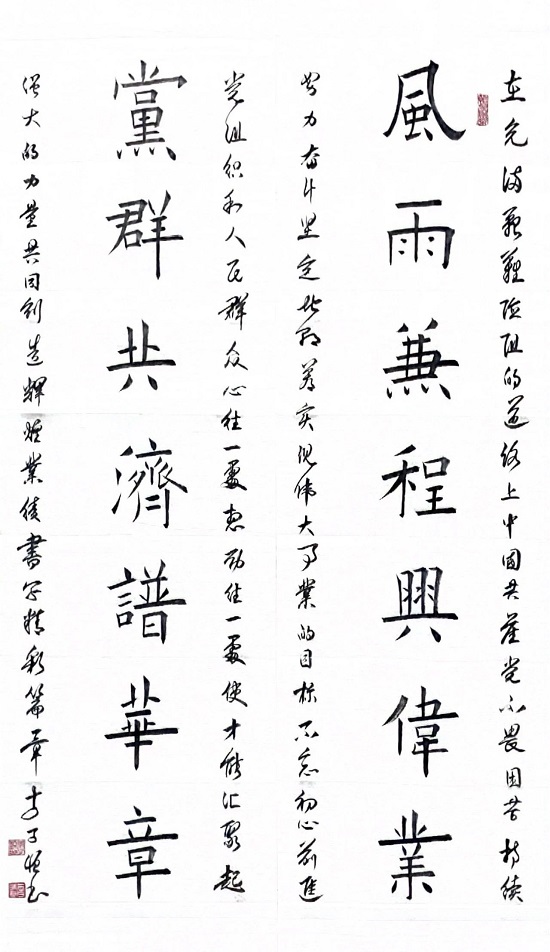 在充满艱難险阻的道路上中國共產党不畏困苦持续
風雨兼程興偉業
努力奋斗坚定地朝着实现伟大事業的目标不忘初心前進
党组织和人民群众心往一處想劲往一處使才能汇聚起
黨群共濟譜華章
强大的力量共同创造輝煌業绩書写精彩篇章